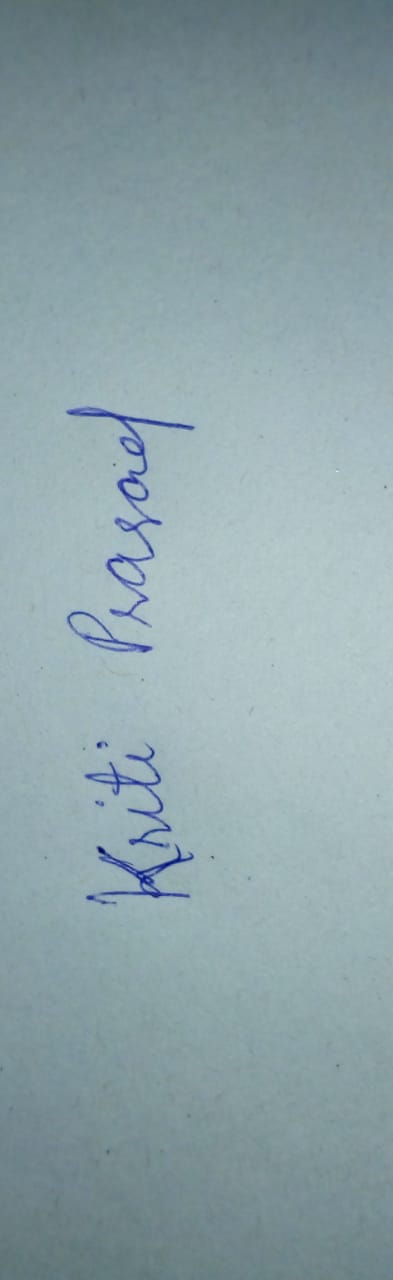 Kriti Prasad